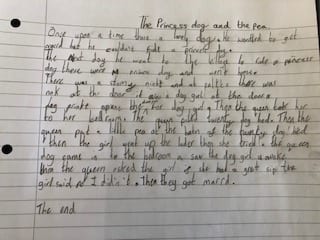 The Princess dog and the pea.
Once upon a time thus a lonly dog. He wanted to get
marrid but he couldn't find a princess dog.
The next day he went to the village to a princess
dog there were no prinses dog and went home.
There was a stormy night and at last there was
nok at the door it was a dog girl at the door.
dog opens the door dog girl. Then the queen took her
to her bedroom. The queen twenty dog bed. Then the
queen put a little pea at the botm of the twenty dog bed
then the girl went up the lader than she tried. the queen
dog came in to the bedroom a saw the dog girl awake
than the queen asked the girl if she had a good sip the
girl said no I didn't. Then they got marrd.
The end